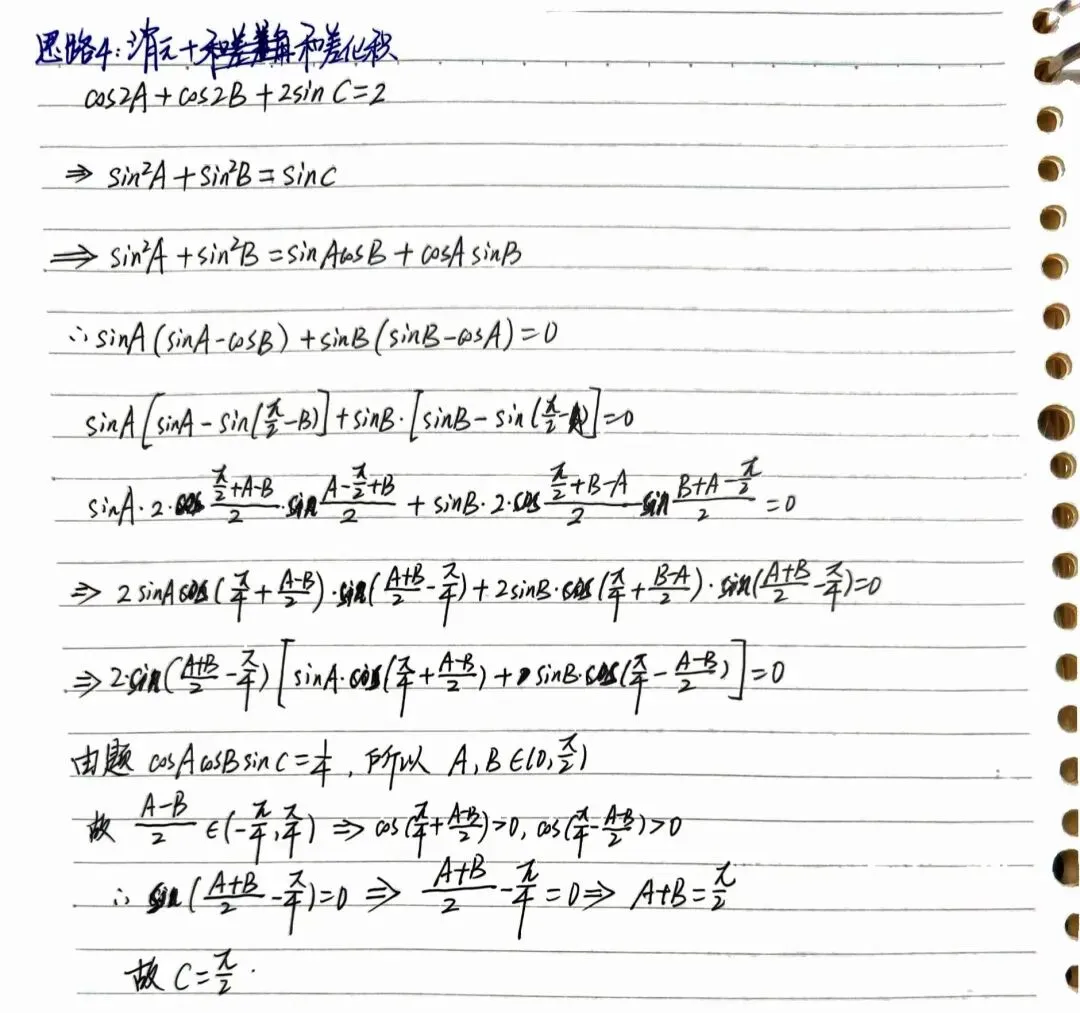 思路4:消元+和差化积
cos2A+cos2B+2sinC=2
⇒ sin²A+sin²B=sinC
⇒ sin²A+sin²B=sinAcosB+cosAsinB
∴ sinA(sinA-cosB)+sinB(sinB-cosA)=0
sinA[sinA-sin(π/2-B)]+sinB·[sinB-sin(π/2-A)]=0
sinA·2·cos (π/2+A-B)/2 ·sin (A-π/2+B)/2 + sinB·2·cos (π/2+B-A)/2 sin (B+A-π/2)/2 =0
⇒ 2sinAcos(π/4+(A-B)/2)·sin((A+B)/2-π/4)+2sinB·cos(π/4+(B-A)/2)·sin((A+B)/2-π/4)=0
⇒ 2·sin((A+B)/2-π/4)[sinA·cos(π/4+(A-B)/2)+sinB·cos(π/4-(A-B)/2)]=0
由题 cosAcosBsinC=1/4, 所以 A,B∈(0,π/2)
故 (A-B)/2 ∈(-π/4,π/4) ⇒ cos(π/4+(A-B)/2)>0, cos(π/4-(A-B)/2)>0
∴ sin((A+B)/2-π/4)=0 ⇒ (A+B)/2-π/4=0 ⇒ A+B=π/2
故 C=π/2.